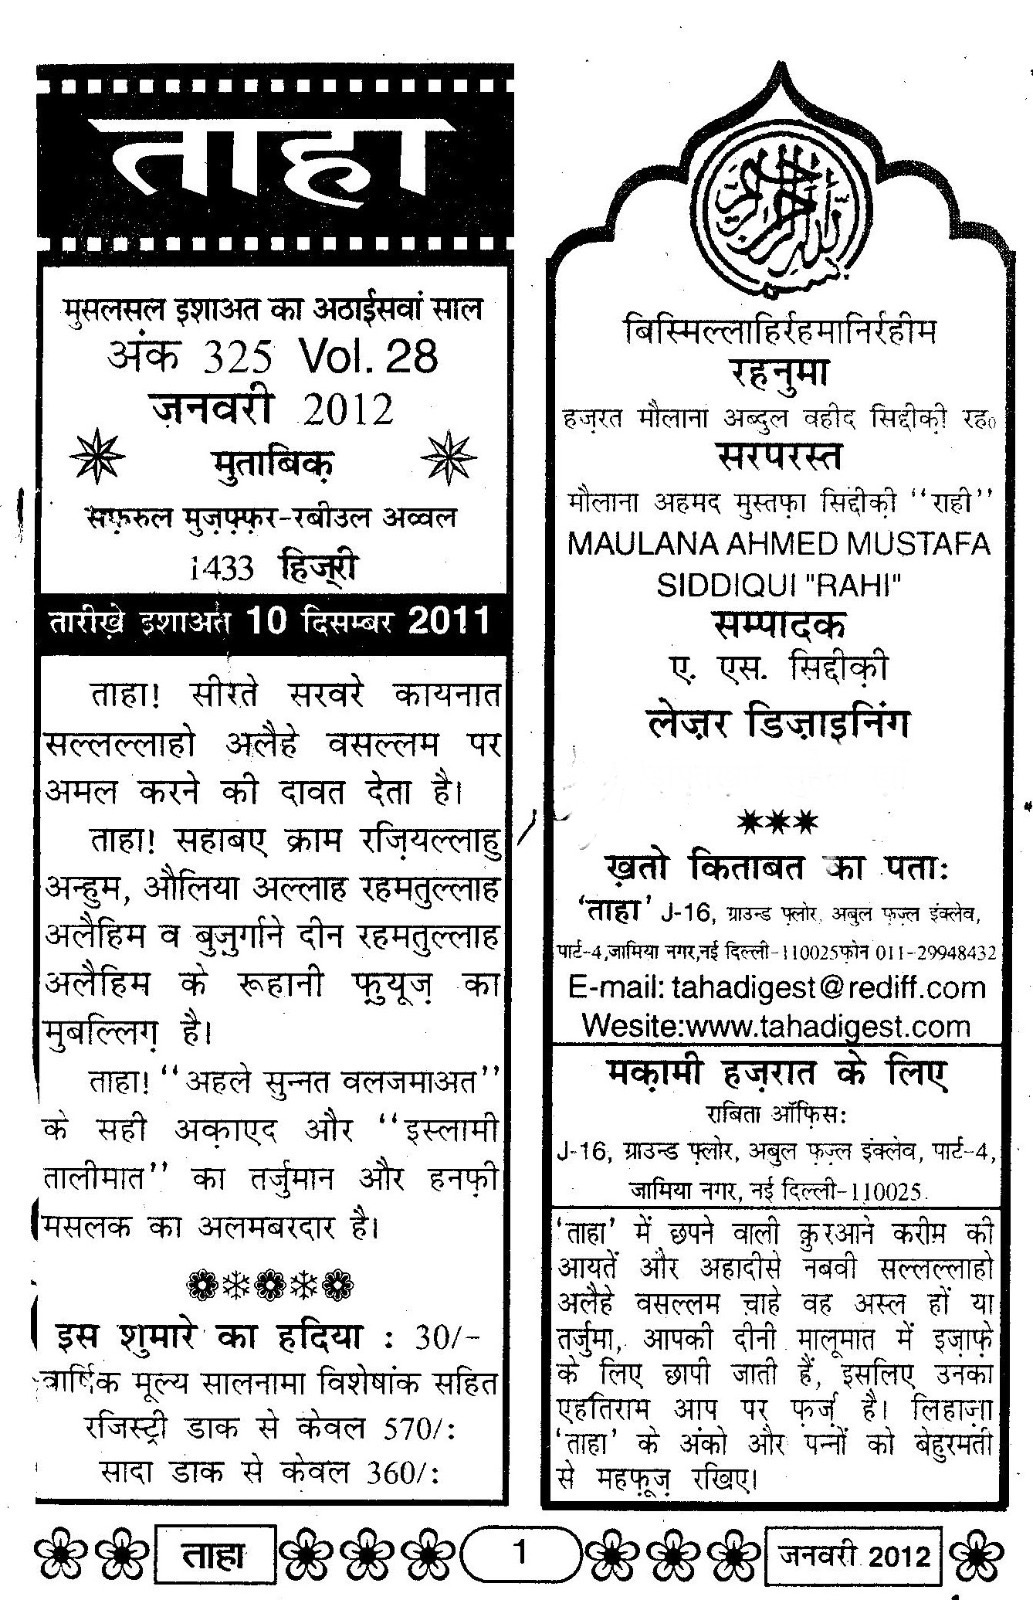 ताहा
मुसलसल इशाअत का अठाईसवां साल
अंक 325 Vol. 28
ज़नवरी 2012
मुताबिक़
सफ़रुल मुज़फ़्फ़र-रबीउल अव्वल
1433 हिज्री
तारीखे़ इशाअत 10 दिसम्बर 2011
ताहा! सीरते सरवरे कायनात
सल्लल्लाहो अलैहे वसल्लम पर
अमल करने की दावत देता है।
ताहा! सहाबए क्राम रज़ियल्लाहु
अन्हुम, औलिया अल्लाह रहमतुल्लाह
अलैहिम व बुज़ुर्गाने दीन रहमतुल्लाह
अलैहिम के रूहानी फ़ुयूज़ का
मुबल्लिग़ है।
ताहा! ‘‘अहले सुन्नत वलजमाअत’’
के सही अक़ाएद और ‘‘इस्लामी
तालीमात’’ का तर्जुमान और हनफ़ी
मसलक का अलमबरदार है।
इस शुमारे का हदिया : 30/-
वार्षिक मूल्य सालनामा विशेषांक सहित
रजिस्ट्री डाक से केवल 570/:
सादा डाक से केवल 360/:
بسم الله الرحمن الرحيم
बिस्मिल्लाहिर्रहमानिर्रहीम
रहनुमा
हज़रत मौलाना अब्दुल वहीद सिद्दीक़ी रह०
सरपरस्त
मौलाना अहमद मुस्तफ़ा सिद्दीक़ी ‘‘राही’’
MAULANA AHMED MUSTAFA
SIDDIQUI "RAHI"
सम्पादक
ए. एस. सिद्दीक़ी
लेज़र डिज़ाइनिंग
ख़तो किताबत का पता:
‘ताहा’ J-16, ग्राउन्ड फ़्लोर, अबुल फज़्ल इंक्लेव,
पार्ट-4,जामिया नगर,नई दिल्ली-110025फ़ोन 011-29948432
E-mail: tahadigest@rediff.com
Wesite:www.tahadigest.com
मक़ामी हज़रात के लिए
राबिता ऑफ़िस:
J-16, ग्राउन्ड फ़्लोर, अबुल फज़्ल इंक्लेव, पार्ट-4,
जामिया नगर, नई दिल्ली-110025.
‘ताहा’ में छपने वाली क़ुरआने करीम की
आयतें और अहादीसे नबवी सल्लल्लाहो
अलैहे वसल्लम चाहे वह अस्ल हों या
तर्जुमा, आपकी दीनी मालूमात में इज़ाफ़े
के लिए छापी जाती हैं, इसलिए उनका
एहतिराम आप पर फ़र्ज़ है। लिहाज़ा
‘ताहा’ के अंको और पन्नों को बेहुरमती
से महफ़ूज़ रखिए।
ताहा
1
जनवरी 2012